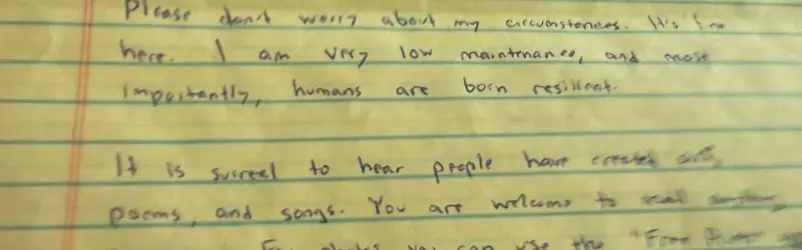 Please don't worry about my circumstances. It's fine
here. I am very low maintenance, and most
importantly, humans are born resilient.
It is surreal to hear people have created art,
poems, and songs. You are welcome to
you can use the "Free